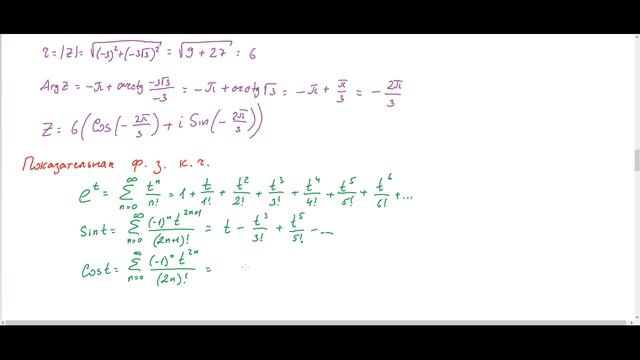 r = |Z| = √((-3)² + (-3√3)²) = √(9 + 27) = 6
Arg Z = -π + arctg (-3√3)/(-3) = -π + arctg √3 = -π + π/3 = -2π/3
Z = 6(Cos(-2π/3) + i Sin(-2π/3))
Показательная ф. з. к. ч.
e^t = ∑_{n=0}^{∞} t^n/n! = 1 + t/1! + t²/2! + t³/3! + t⁴/4! + t⁵/5! + t⁶/6! + ...
Sin t = ∑_{n=0}^{∞} (-1)^n t^{2n+1}/(2n+1)! = t - t³/3! + t⁵/5! - ...
Cos t = ∑_{n=0}^{∞} (-1)^n t^{2n}/(2n)! =